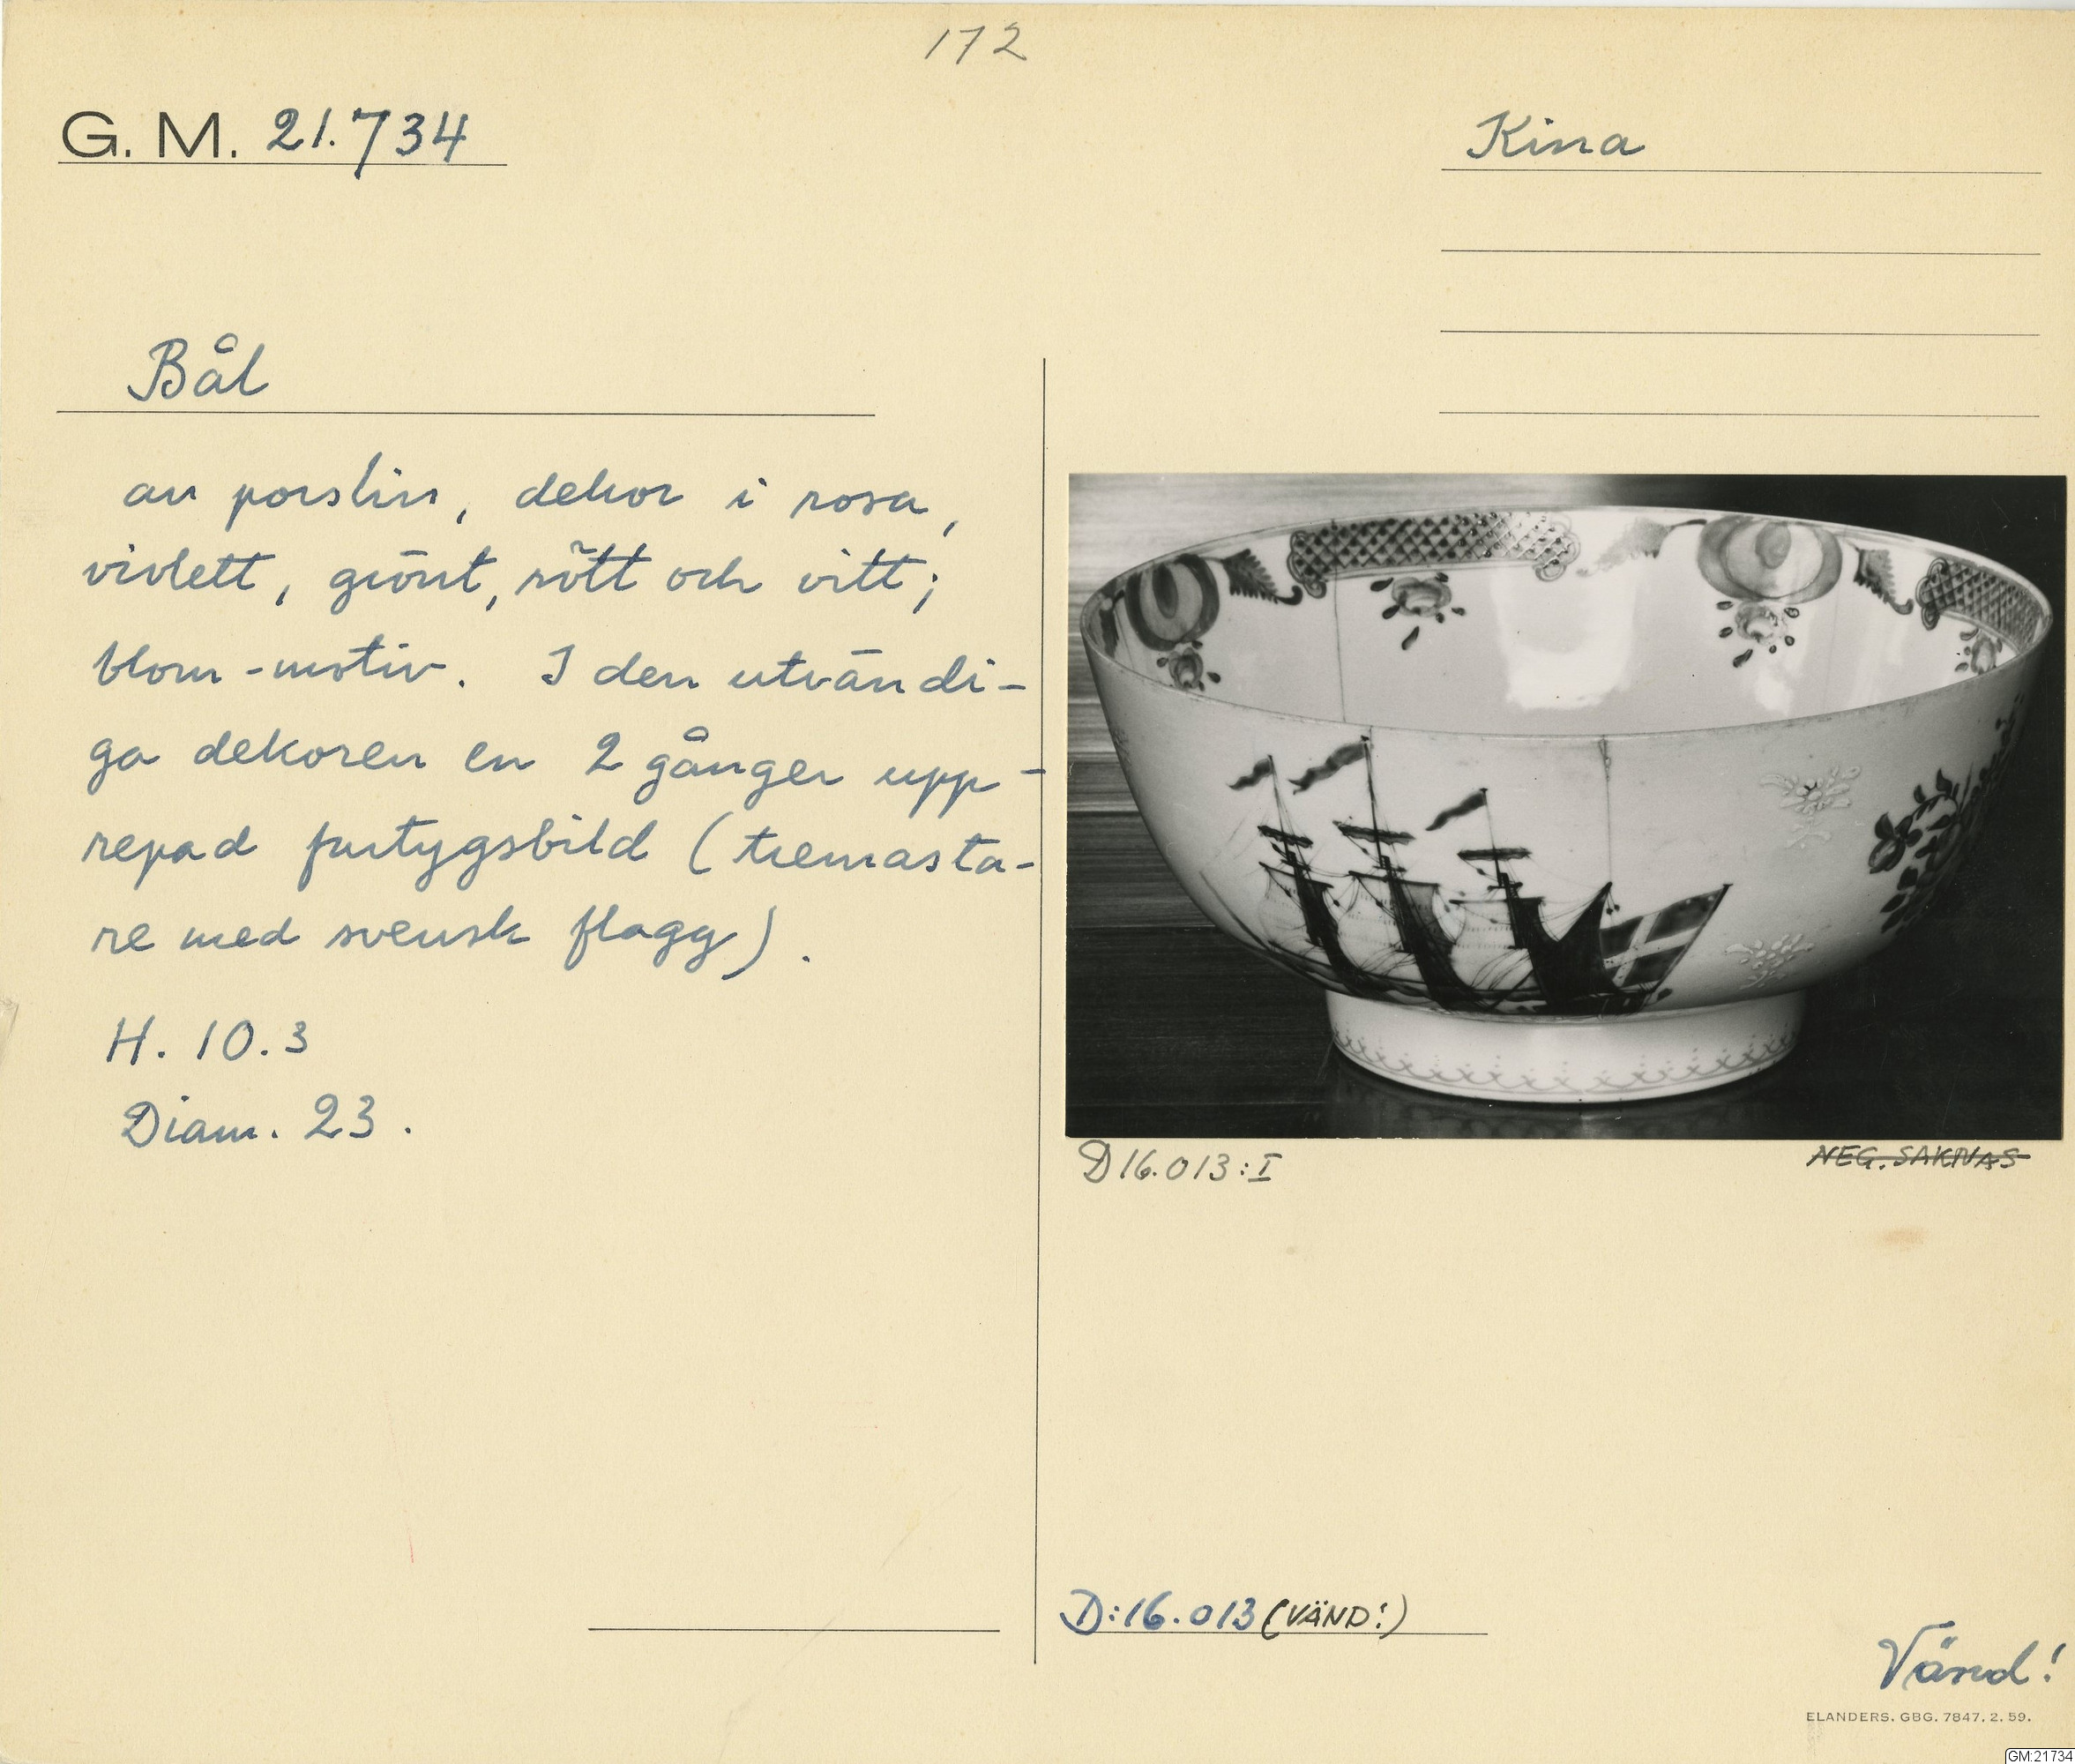 172
G. M. 21.734
Kina
Bål
av porslin, dekor i rosa,
violett, grönt, rött och vitt;
blom-motiv. I den utvändi-
ga dekoren en 2 gånger upp-
repad fartygsbild (tremasta-
re med svensk flagg).
H. 10.3
Diam. 23.
D16.013:I
NEG. SAKNAS
D:16.013 (VÄND!)
Vänd!
ELANDERS. GBG. 7847. 2. 59.
GM:21734